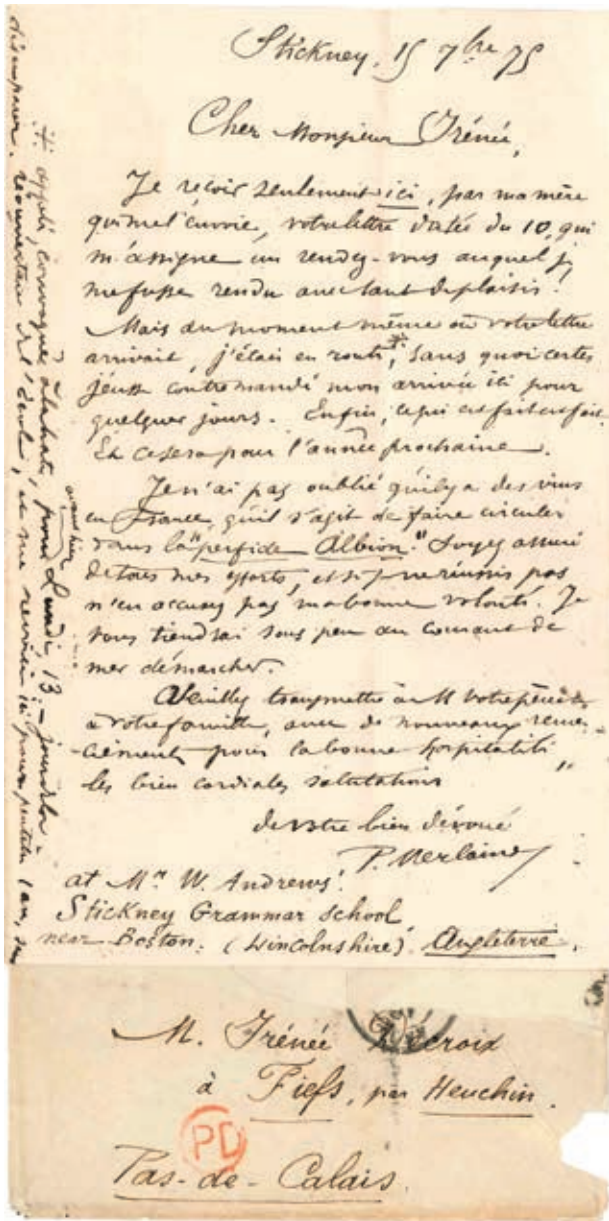 Stickney, 15 7bre 75
Cher Monsieur Irénée,
Je reçois seulement ici, par ma mère
qui me l'envoie, votre lettre datée du 10, qui
m'assigne un rendez-vous auquel je
me fusse rendu avec tant de plaisir !
Mais au moment même où votre lettre
arrivait, j'étais en route,+ sans quoi certes
j'eusse contremandé mon arrivée ici pour
quelques jours. Enfin, ce qui est fait est fait.
Et ce sera pour l'année prochaine.
Je n'ai pas oublié qu'il y a des vins
en France, qu'il s'agit de faire circuler
dans la "perfide Albion." Soyez assuré
de tous mes efforts, et si je ne réussis pas
n'en accusez pas ma bonne volonté. Je
vous tiendrai sous peu au courant de
mes démarches.
Veuillez transmettre à M votre père &
à votre famille, avec de nouveaux remer-
-ciements pour la bonne hospitalité,
les bien cordiales salutations
de votre bien dévoué
P. Verlaine
at Mr W. Andrews'.
Stickney Grammar School
near Boston. (Lincolnshire). Angleterre.
+ appelé, convoqué à la hâte, pour Lundi 13 – jour de la
avant hier
réouverture de l'école, et me revoici ici pour peut-être 1 an, sans
désemparer.
M. Irénée Decroix
à Fiefs, par Heuchin.
PD
Pas-de-Calais.